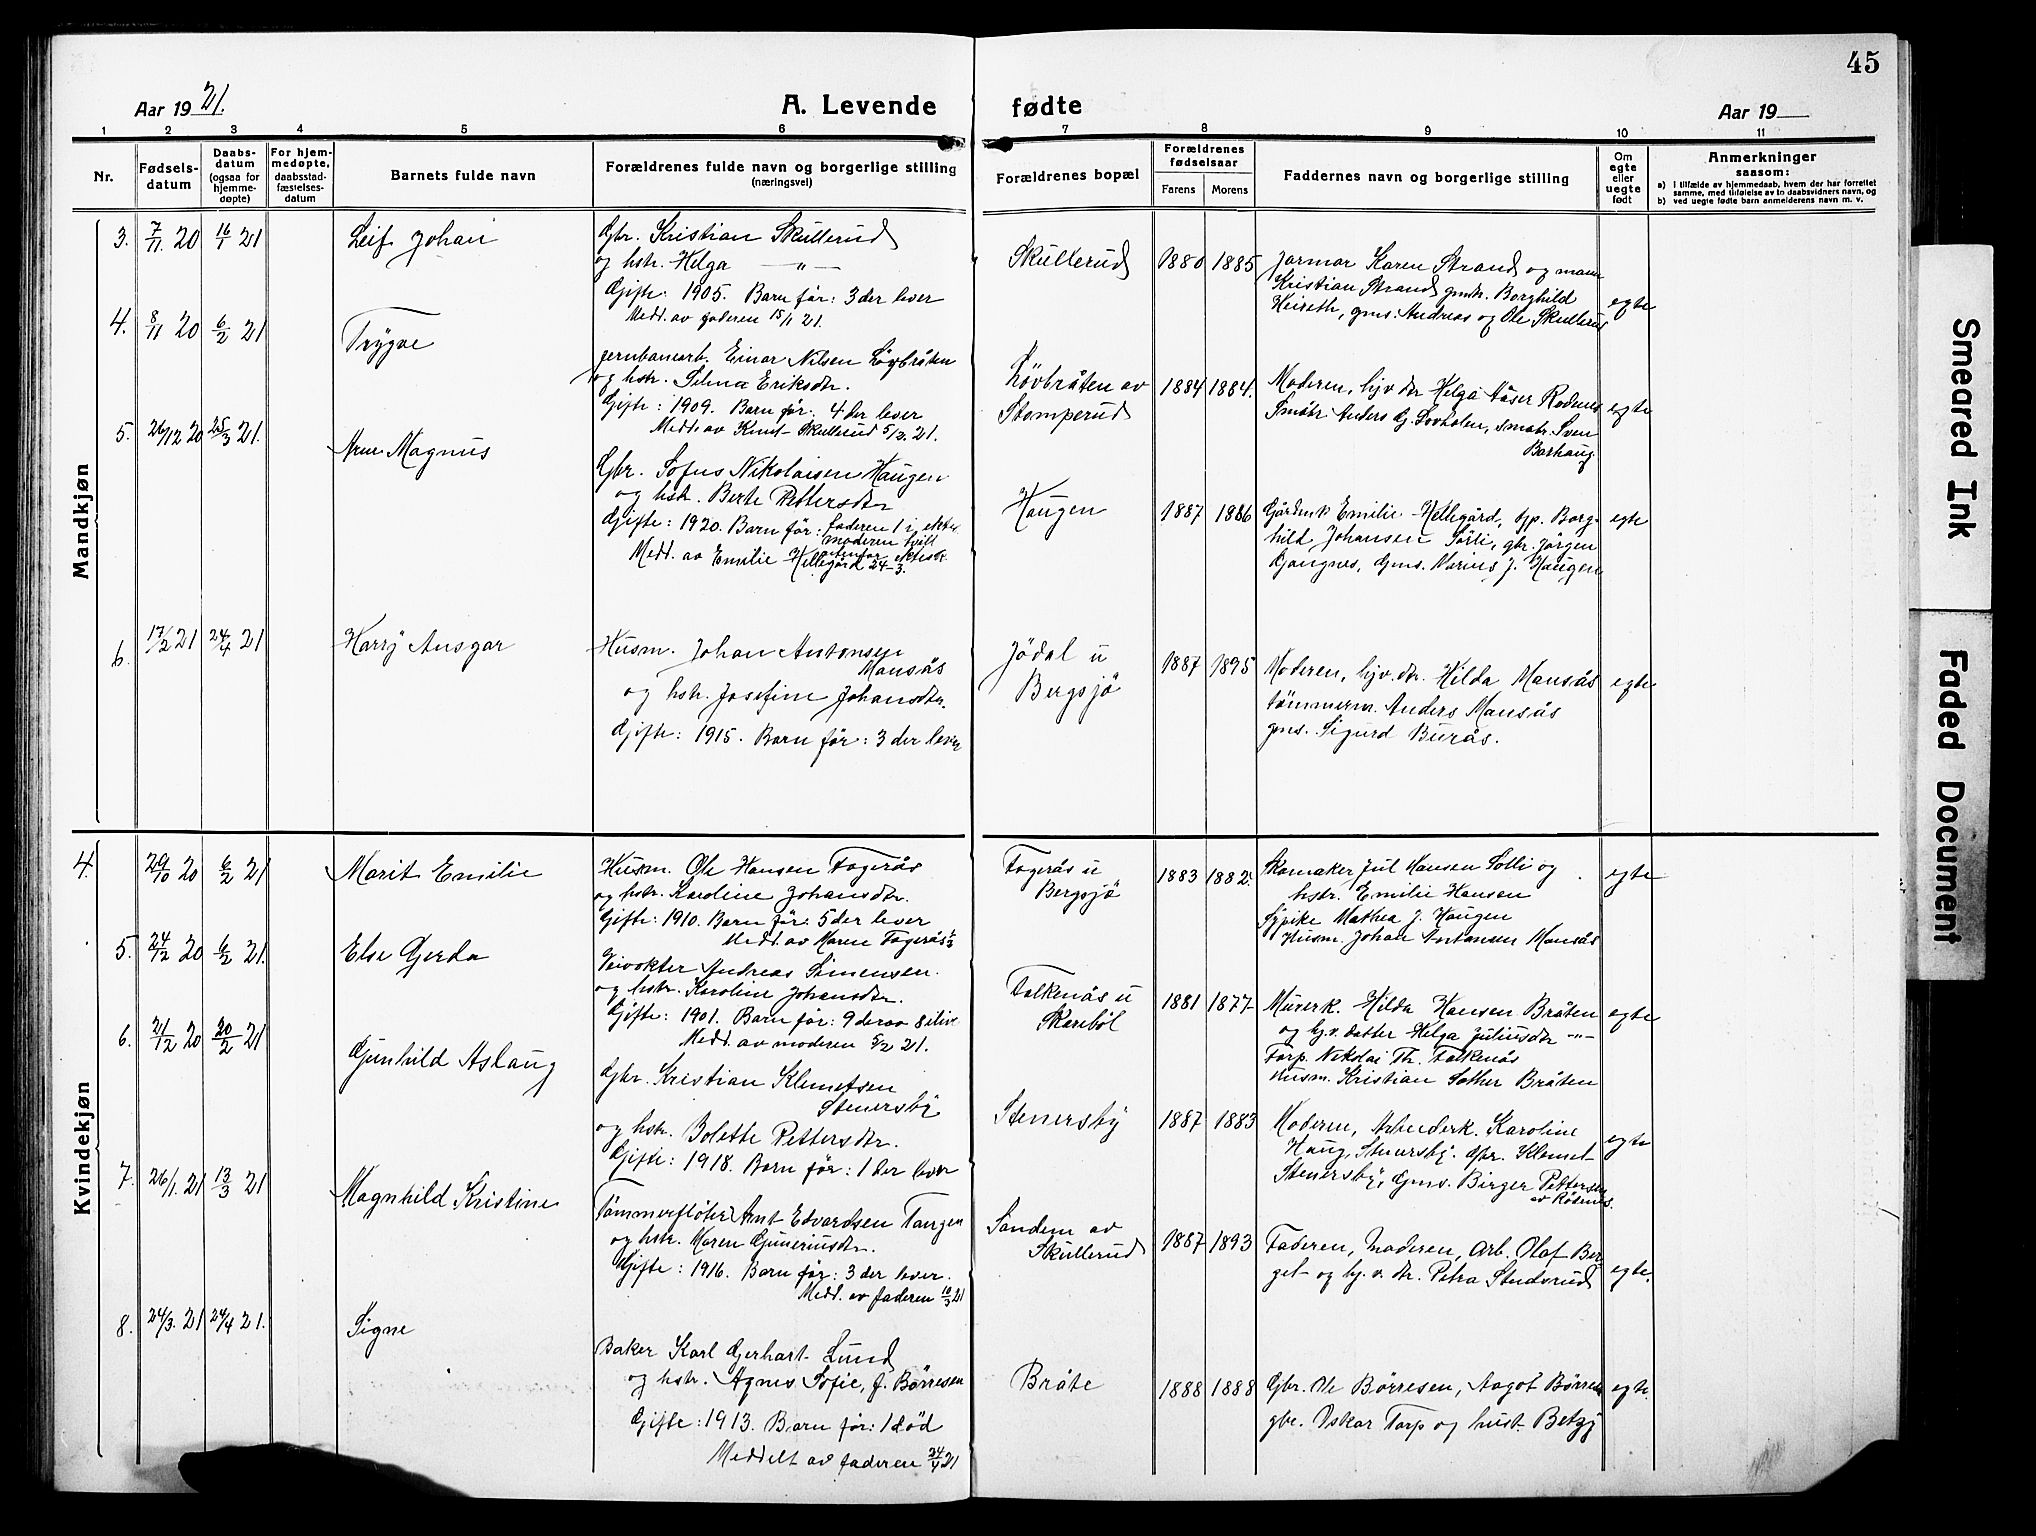 45
Aar 1921.
A. Levende
fødte
Aar 19
1 2 3 4 5 6 7 8 9 10 11
Nr.
Fødsels-
datum
Daabs-
datum
(ogsaa for
hjemme-
døpte)
For hjem-
medøpte,
daabsstad-
fæstelses-
datum
Barnets fulde navn
Forældrenes fulde navn og borgerlige stilling
(næringsvei)
Forældrenes bopæl
Forældrenes
fødselsaar
Farens Morens
Faddernes navn og borgerlige stilling
Om
egte
eller
uegte
født
Anmerkninger
saasom:
a) i tilfælde av hjemmedaab, hvem der har forrettet
samme, med tilføielse av to daabsvidners navn, og
b) ved uegte fødte barn anmelderens navn m. v.
Mandkjøn
3. 7/11 20 16/1 21 Leif Johan
Gbr. Kristian Skullerud
og hstr. Helga —"—
Gifte: 1905. Barn før: 3 der lever
Medd. av faderen 15/1 21.
Skullerud 1880 1885
Jormor Karen Strand og mann
Kristian Strand, gmstr. Borghild
Heiseth, gms. Andreas og Ole Skullerud
egte
4. 8/11 20 6/2 21 Trygve
jernbanearb. Einar Nilsen Løvbråten
og hstr. Selma Eriksdtr.
Gifte: 1909. Barn før: 4 der lever
Medd. av Knut Skullerud 5/2 21.
Løvbråten av
Stomperud
1884 1884.
Moderen, hjv. dtr Helga Aaser Rødenes
Småbr. Anders G. Lovholen, småbr. Sven
Barhaug
egte
5. 26/12 20 25/3 21. Arne Magnus
Gbr. Sofus Nikolaisen Haugen
og hstr. Berte Pettersdtr
Gifte: 1920. Barn før: faderen 1 i ekte
moderen tvill
utenfor ektesk.
Medd. av Emilie Hellegård 24-3.
Haugen 1887 1886
Gårdmk Emilie Hellegård, tjp. Borg-
hild Johansen Sørli, gbr. Jørgen
Gjøngnes, gms. Marius J. Haugen
egte
6. 17/2 21 24/4 21 Harry Ansgar
Husm. Johan Antonsen
Mansås
og hstr. Josefine Johansdtr.
Gifte: 1915. Barn før: 3 der lever
Jødal u
Bergsjø
1887 1895
Moderen, hjv. dtr. Hilda Mansås
tømmerm. Anders Mansås
gms. Sigurd Burås.
egte
Kvindekjøn
4. 29/10 20 6/2 21 Marit Emilie
Husm. Ole Hansen Fagerås
og hstr. Karoline Johansdtr.
Gifte: 1910. Barn før: 5 der lever
Medd. av Maren Fagerås
Fagerås u
Bergsjø
1883 1882.
Skomaker Jul Hansen Solli og
hstr. Emilie Hansen
Sypike Mathea J. Haugen
Husm. Johan Antonsen Mansås
egte
5. 24/12 20 6/2 21. Else Gerda
Veivokter Andreas Simensen
og hstr. Karoline Johansdtr.
Gifte: 1901. Barn før: 9 derav 8 ilive
Medd. av moderen 5/2 21.
Falkenås u
Skarebøl
1881 1877
Murerk. Hilda Hansen Bråten
og hj.v. datter Helga Juliusdtr —"—
Forp. Nikolai Th. Falkenås
Husm. Kristian Sother Bråten
egte
6. 21/12 20 20/2 21 Gunhild Aslaug
Gbr. Kristian Klemetsen
Stenersby
og hstr. Bolette Pettersdtr.
Gifte: 1918. Barn før: 1 der lever
Stenersby 1887 1883
Moderen, Arbeiderk. Karoline
Haug, Stenersby. Gbr. Klemet
Stenersby, Gms. Birger Pettersen
av Rösenes.
egte
7. 26/1. 21 13/3 21 Magnhild Kristine
Tømmerfløter Arnt Edvardsen Tangen
og hstr. Maren Gunneriusdtr.
Gifte: 1916. Barn før: 3 der lever.
Medd. av faderen 10/3 21
Sandem av
Skullerud
1887 1893
Faderen, moderen, Arb. Olaf Ber-
get og hj. v. dtr. Petra Studsrud
egte.
8. 24/3. 21 24/4 21. Signe
Baker Karl Gerhart Lund
og hstr. Agnes Sofie, f. Børresen
Gifte: 1913. Barn før: 1 død
Meddelt av faderen 24/4 21
Bråte 1888 1888
Gbr. Ole Børresen, Aagot Børresen
gbr. Oskar Torp og hust. Betzy
egte.
Smeared Ink
Faded Document